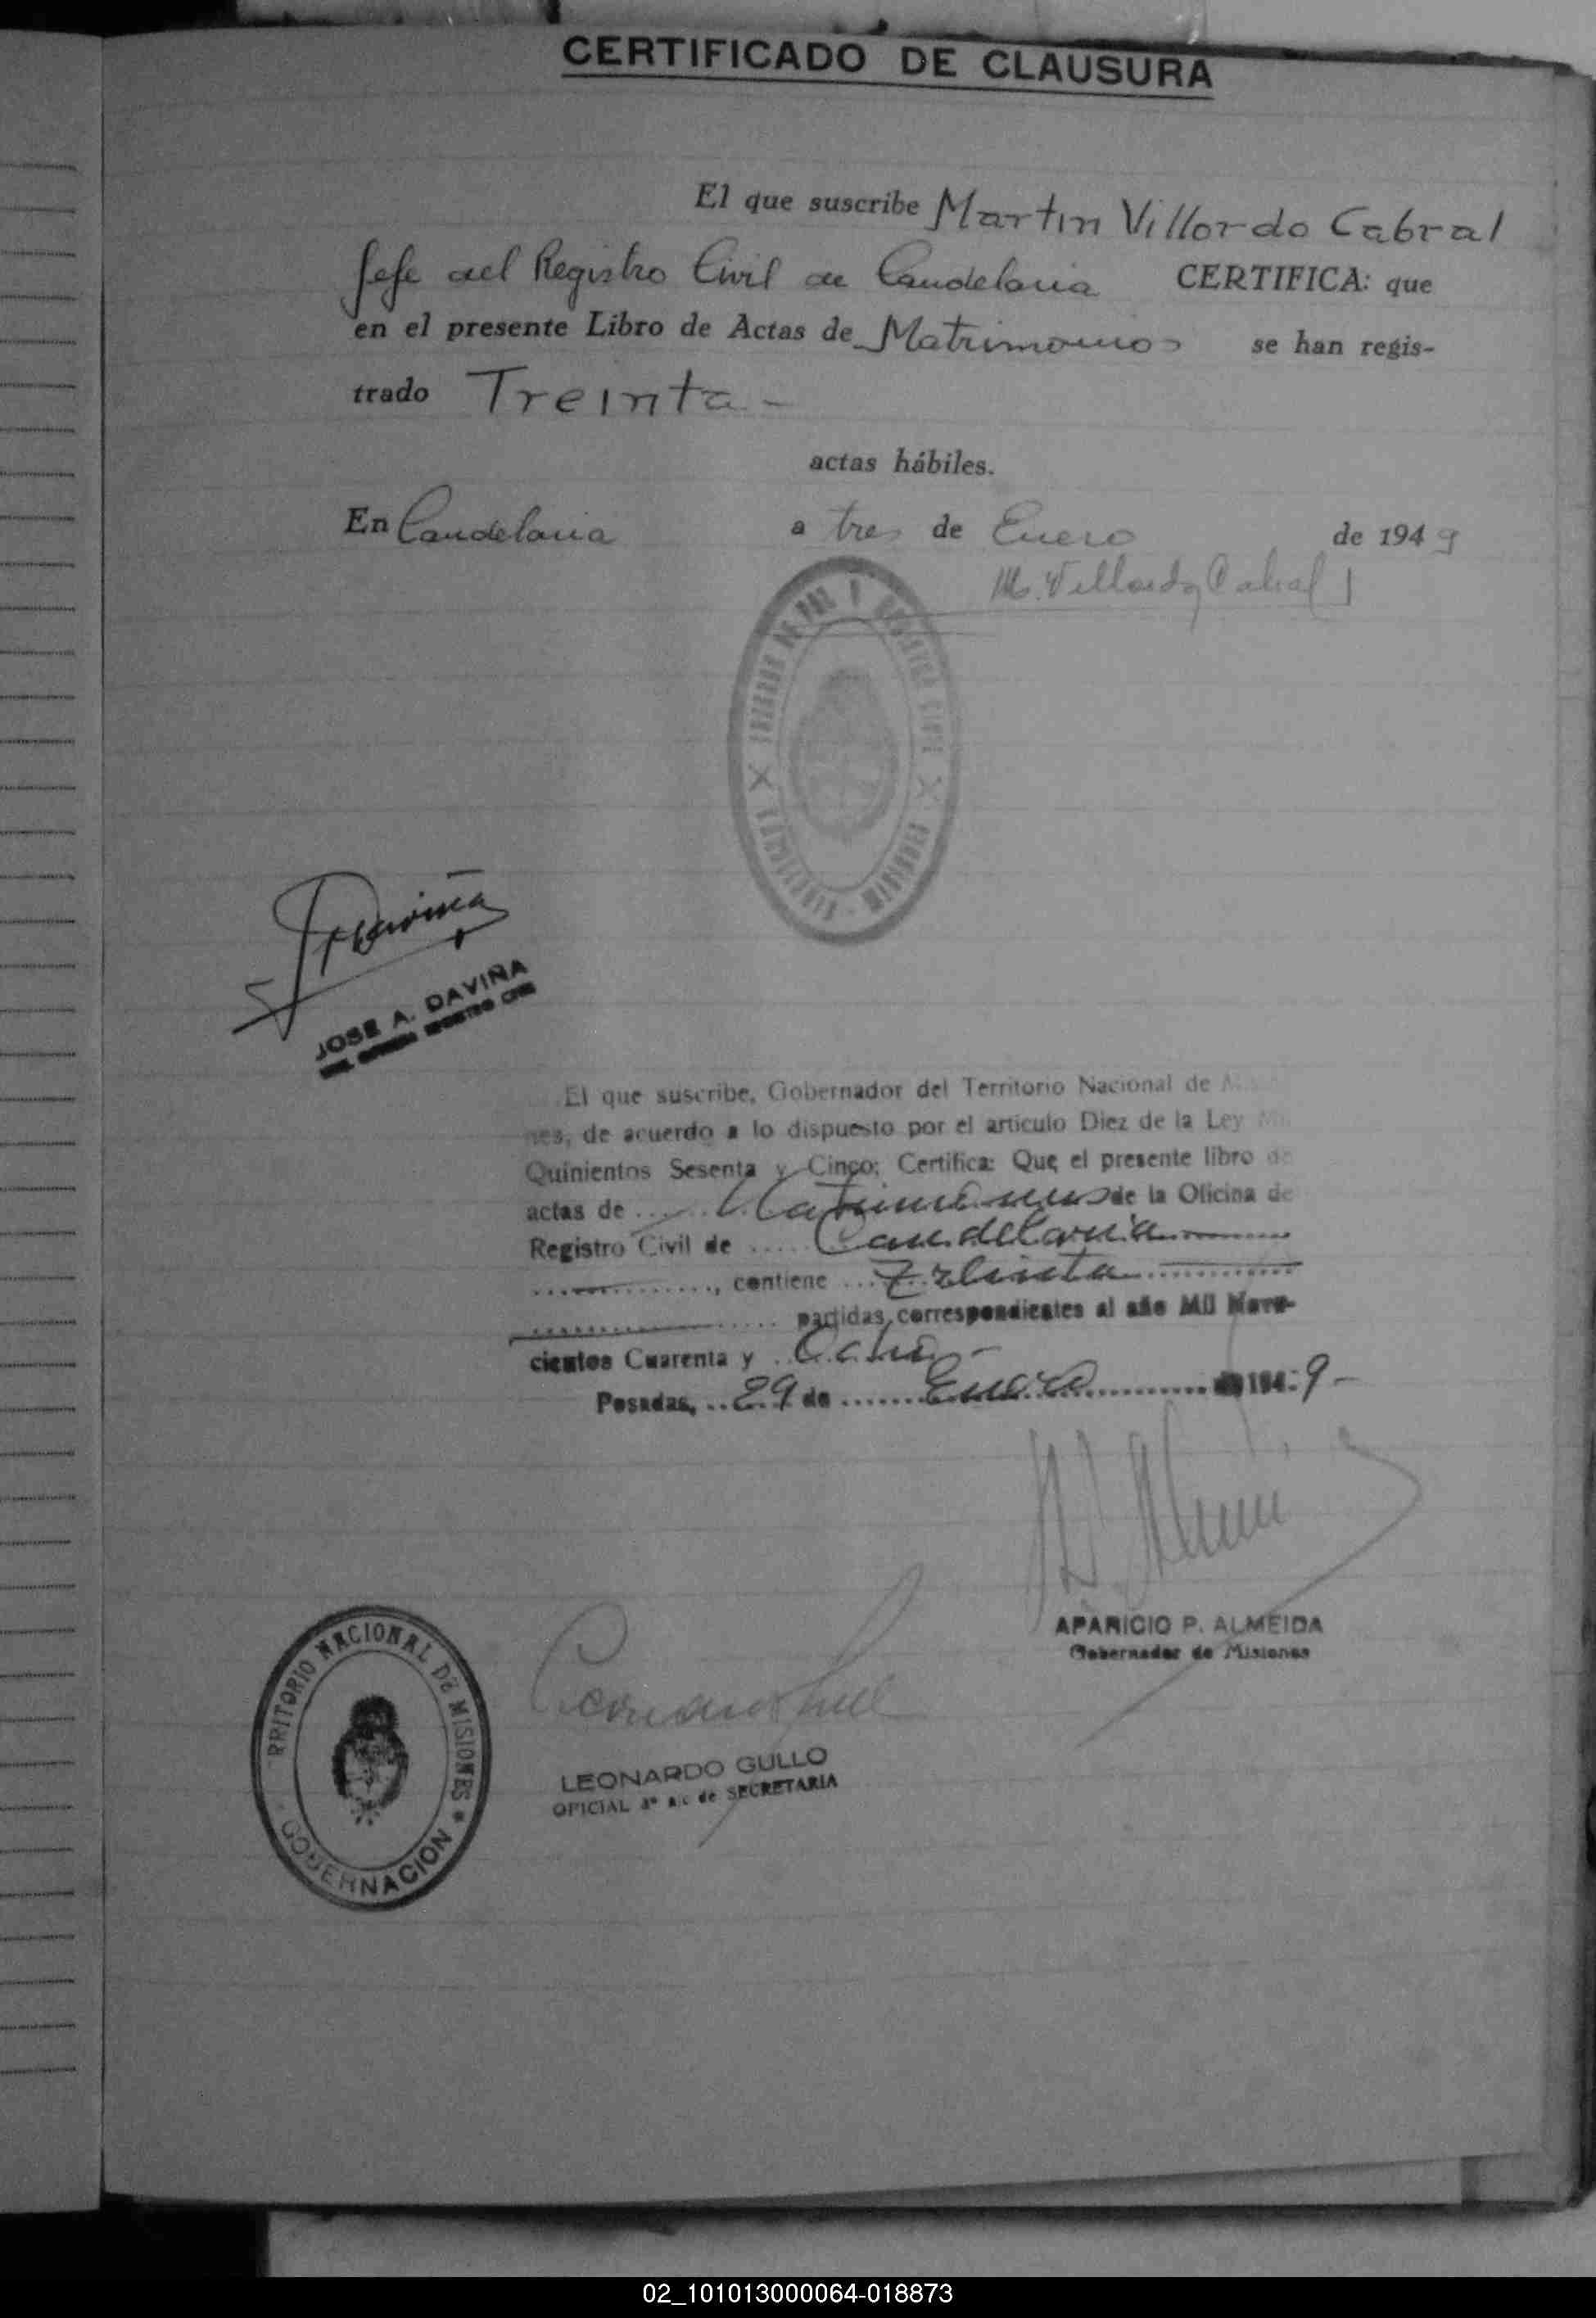 CERTIFICADO DE CLAUSURA
El que suscribe Martin Villordo Cabral
Jefe del Registro Civil de Candelaria CERTIFICA: que
en el presente Libro de Actas de Matrimonios se han regis-
trado Treinta -
actas hábiles.
En Candelaria a tres de Enero de 1949
M. Villordo Cabral
JUZGADO DE PAZ Y REGISTRO CIVIL
CANDELARIA - MISIONES
JOSE A. DAVIÑA
REGISTRO CIVIL
El que suscribe, Gobernador del Territorio Nacional de
nes, de acuerdo a lo dispuesto por el artículo Diez de la Ley Mil
Quinientos Sesenta y Cinco; Certifica: Que el presente libro de
actas de Matrimonios de la Oficina de
Registro Civil de Candelaria
, contiene Treinta
partidas, correspondientes al año Mil Nove-
cientos Cuarenta y Ocho -
Posadas, 29 de Enero de 1949 -
APARICIO P. ALMEIDA
Gobernador de Misiones
RRITORIO NACIONAL DE MISIONES *
GOBERNACION
LEONARDO GULLO
OFICIAL a/c de SECRETARIA
02_101013000064-018873